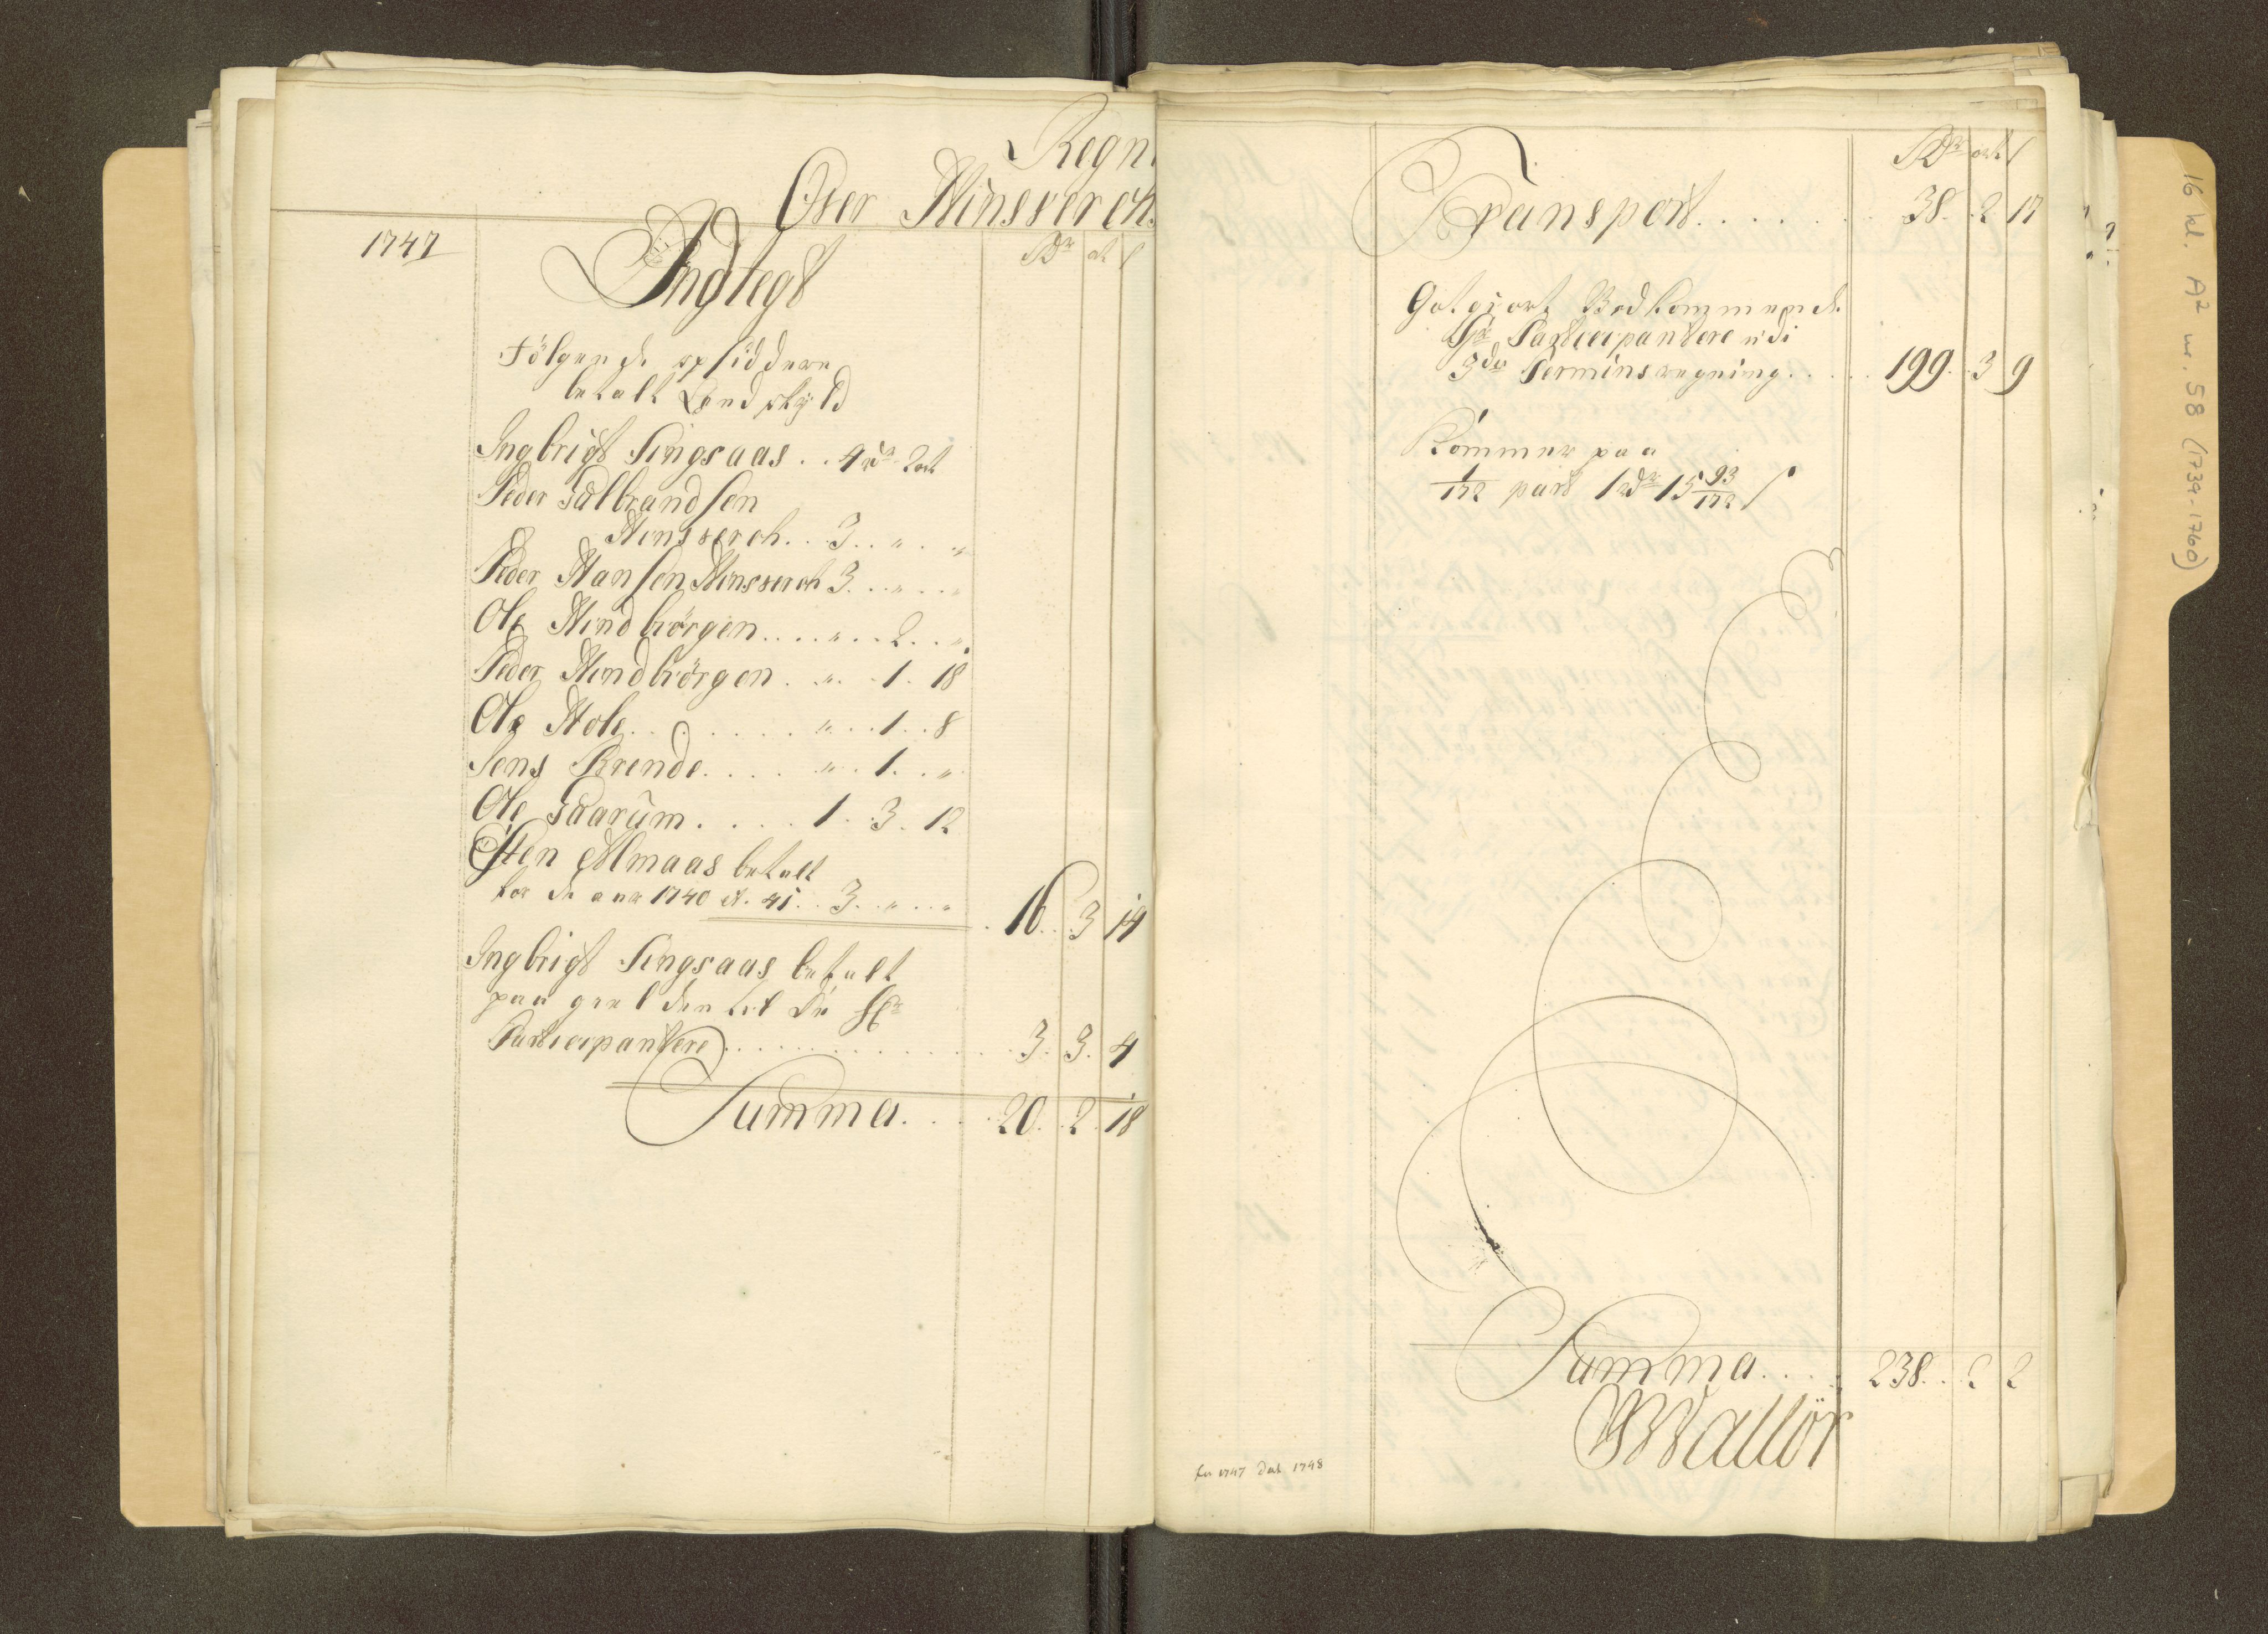 Regn
Over Hensverch
1747
Indtegt
Rdr ort ſ
Fölgende opsiddere
betalt Landskyld
Ingbrigt Singsaas . . 4 rdr 2 ort
Peder Gulbrandsen
Hensverch . . 3 . . " . . "
Peder Hansen Hensverch 3 . . " . . "
Ole Hindbörgen . . . . " . . 2 . . "
Peder Hindbörgen . . " . . 1 . 18
Ole Hole . . . . . . . " . . 1 . . 8
Jens Brende . . . . " . 1 . . "
Ole Gaarum . . . . 1 . 3 . 12
Östen Almaas betalt
for de aar 1740 et. 41 . . 3 . . " . . " . 16 . . 3 14
Ingbrigt Singsaas betalt
paa gielden til de Hr
Participantere . . . . . . . . . . . . . 3 . 3 . 4
Summa . . . . 20 . 2 . 18
Rdr ort ſ
Transport . . . . . . . 38 . . 2 17
Gotgiort Vedkommende
Hr Participantere udi
3de Terminsregning . . . . . 199 . . 3 9
Kommer paa
1/172 part 1 rdr 15 93/172 ſ
Summa . . . . 238 . . 2 2
Wallör
for 1747 dat 1748
16 kl. A2 nr. 58 (1739-1760)